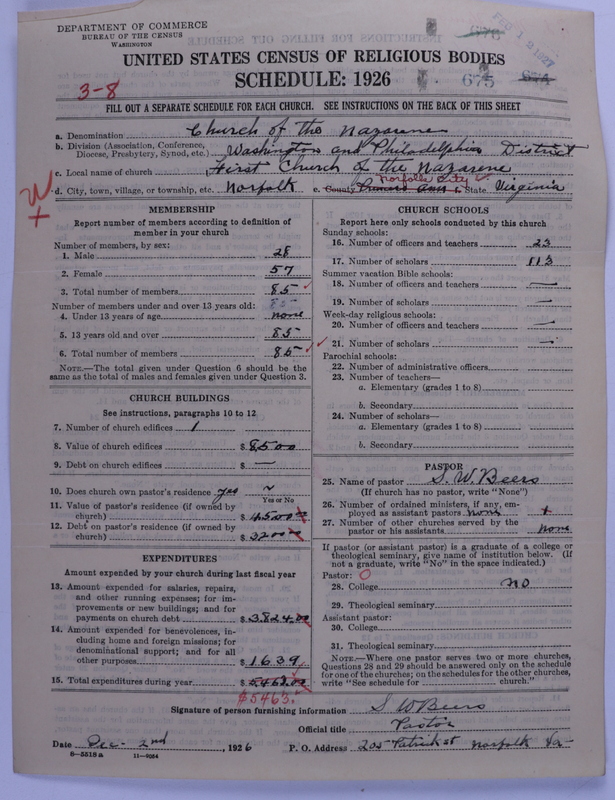 DEPARTMENT OF COMMERCE
BUREAU OF THE CENSUS
WASHINGTON
676
FEB 12 1927
UNITED STATES CENSUS OF RELIGIOUS BODIES
SCHEDULE: 1926
675 674
3-8
FILL OUT A SEPARATE SCHEDULE FOR EACH CHURCH. SEE INSTRUCTIONS ON THE BACK OF THIS SHEET
a. Denomination Church of the Nazarene
b. Division (Association, Conference, Diocese, Presbytery, Synod, etc.) Washington and Philadelphia District
c. Local name of church First Church of the Nazarene
Norfolk City
d. City, town, village, or township, etc. Norfolk e. County Princess Ann f. State Virginia
W
+
MEMBERSHIP
Report number of members according to definition of
member in your church
Number of members, by sex:
1. Male 28
2. Female 57
3. Total number of members 85
Number of members under and over 13 years old: 85
4. Under 13 years of age none
5. 13 years old and over 85
6. Total number of members 85
NOTE.—The total given under Question 6 should be
same as the total of males and females given under Question 3.
CHURCH BUILDINGS
See instructions, paragraphs 10 to 12
7. Number of church edifices 1
8. Value of church edifices $ 8500
9. Debt on church edifices $ —
10. Does church own pastor's residence yes
Yes or No
11. Value of pastor's residence (if owned by
church) $ 4500.00
12. Debt on pastor's residence (if owned by
church) $ 3200.00
EXPENDITURES
Amount expended by your church during last fiscal year
13. Amount expended for salaries, repairs,
and other running expenses; for im-
provements or new buildings; and for
payments on church debt $ 3,824.00
14. Amount expended for benevolences, in-
cluding home and foreign missions; for
denominational support; and for all
other purposes $ 1639
15. Total expenditures during year $ 5463.00
$5463.
CHURCH SCHOOLS
Report here only schools conducted by this church
Sunday schools:
16. Number of officers and teachers 23
17. Number of scholars 113
Summer vacation Bible schools:
18. Number of officers and teachers —
19. Number of scholars —
Week-day religious schools:
20. Number of officers and teachers —
21. Number of scholars —
Parochial schools:
22. Number of administrative officers
23. Number of teachers—
a. Elementary (grades 1 to 8)
b. Secondary
24. Number of scholars—
a. Elementary (grades 1 to 8)
b. Secondary
PASTOR
25. Name of pastor S. W. Beers
(If church has no pastor, write "None")
26. Number of ordained ministers, if any, em-
ployed as assistant pastors none +
27. Number of other churches served by the
pastor or his assistants none
If pastor (or assistant pastor) is a graduate of a college or
theological seminary, give name of institution below. (If
not a graduate, write "No" in the space indicated.)
Pastor: O
28. College no
29. Theological seminary
Assistant pastor:
30. College
31. Theological seminary
NOTE.—Where one pastor serves two or more churches,
Questions 28 and 29 should be answered only on the schedule
for one of the churches; on the schedules for the other churches,
write "See schedule for church."
Signature of person furnishing information S W Beers
Official title Pastor
Date Dec. 2nd, 1926 P. O. Address 205 Patrick st Norfolk Va
8—5518a 11—9054